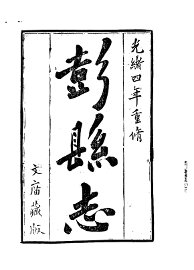 光緒四年重脩
彭縣志
文庙藏版